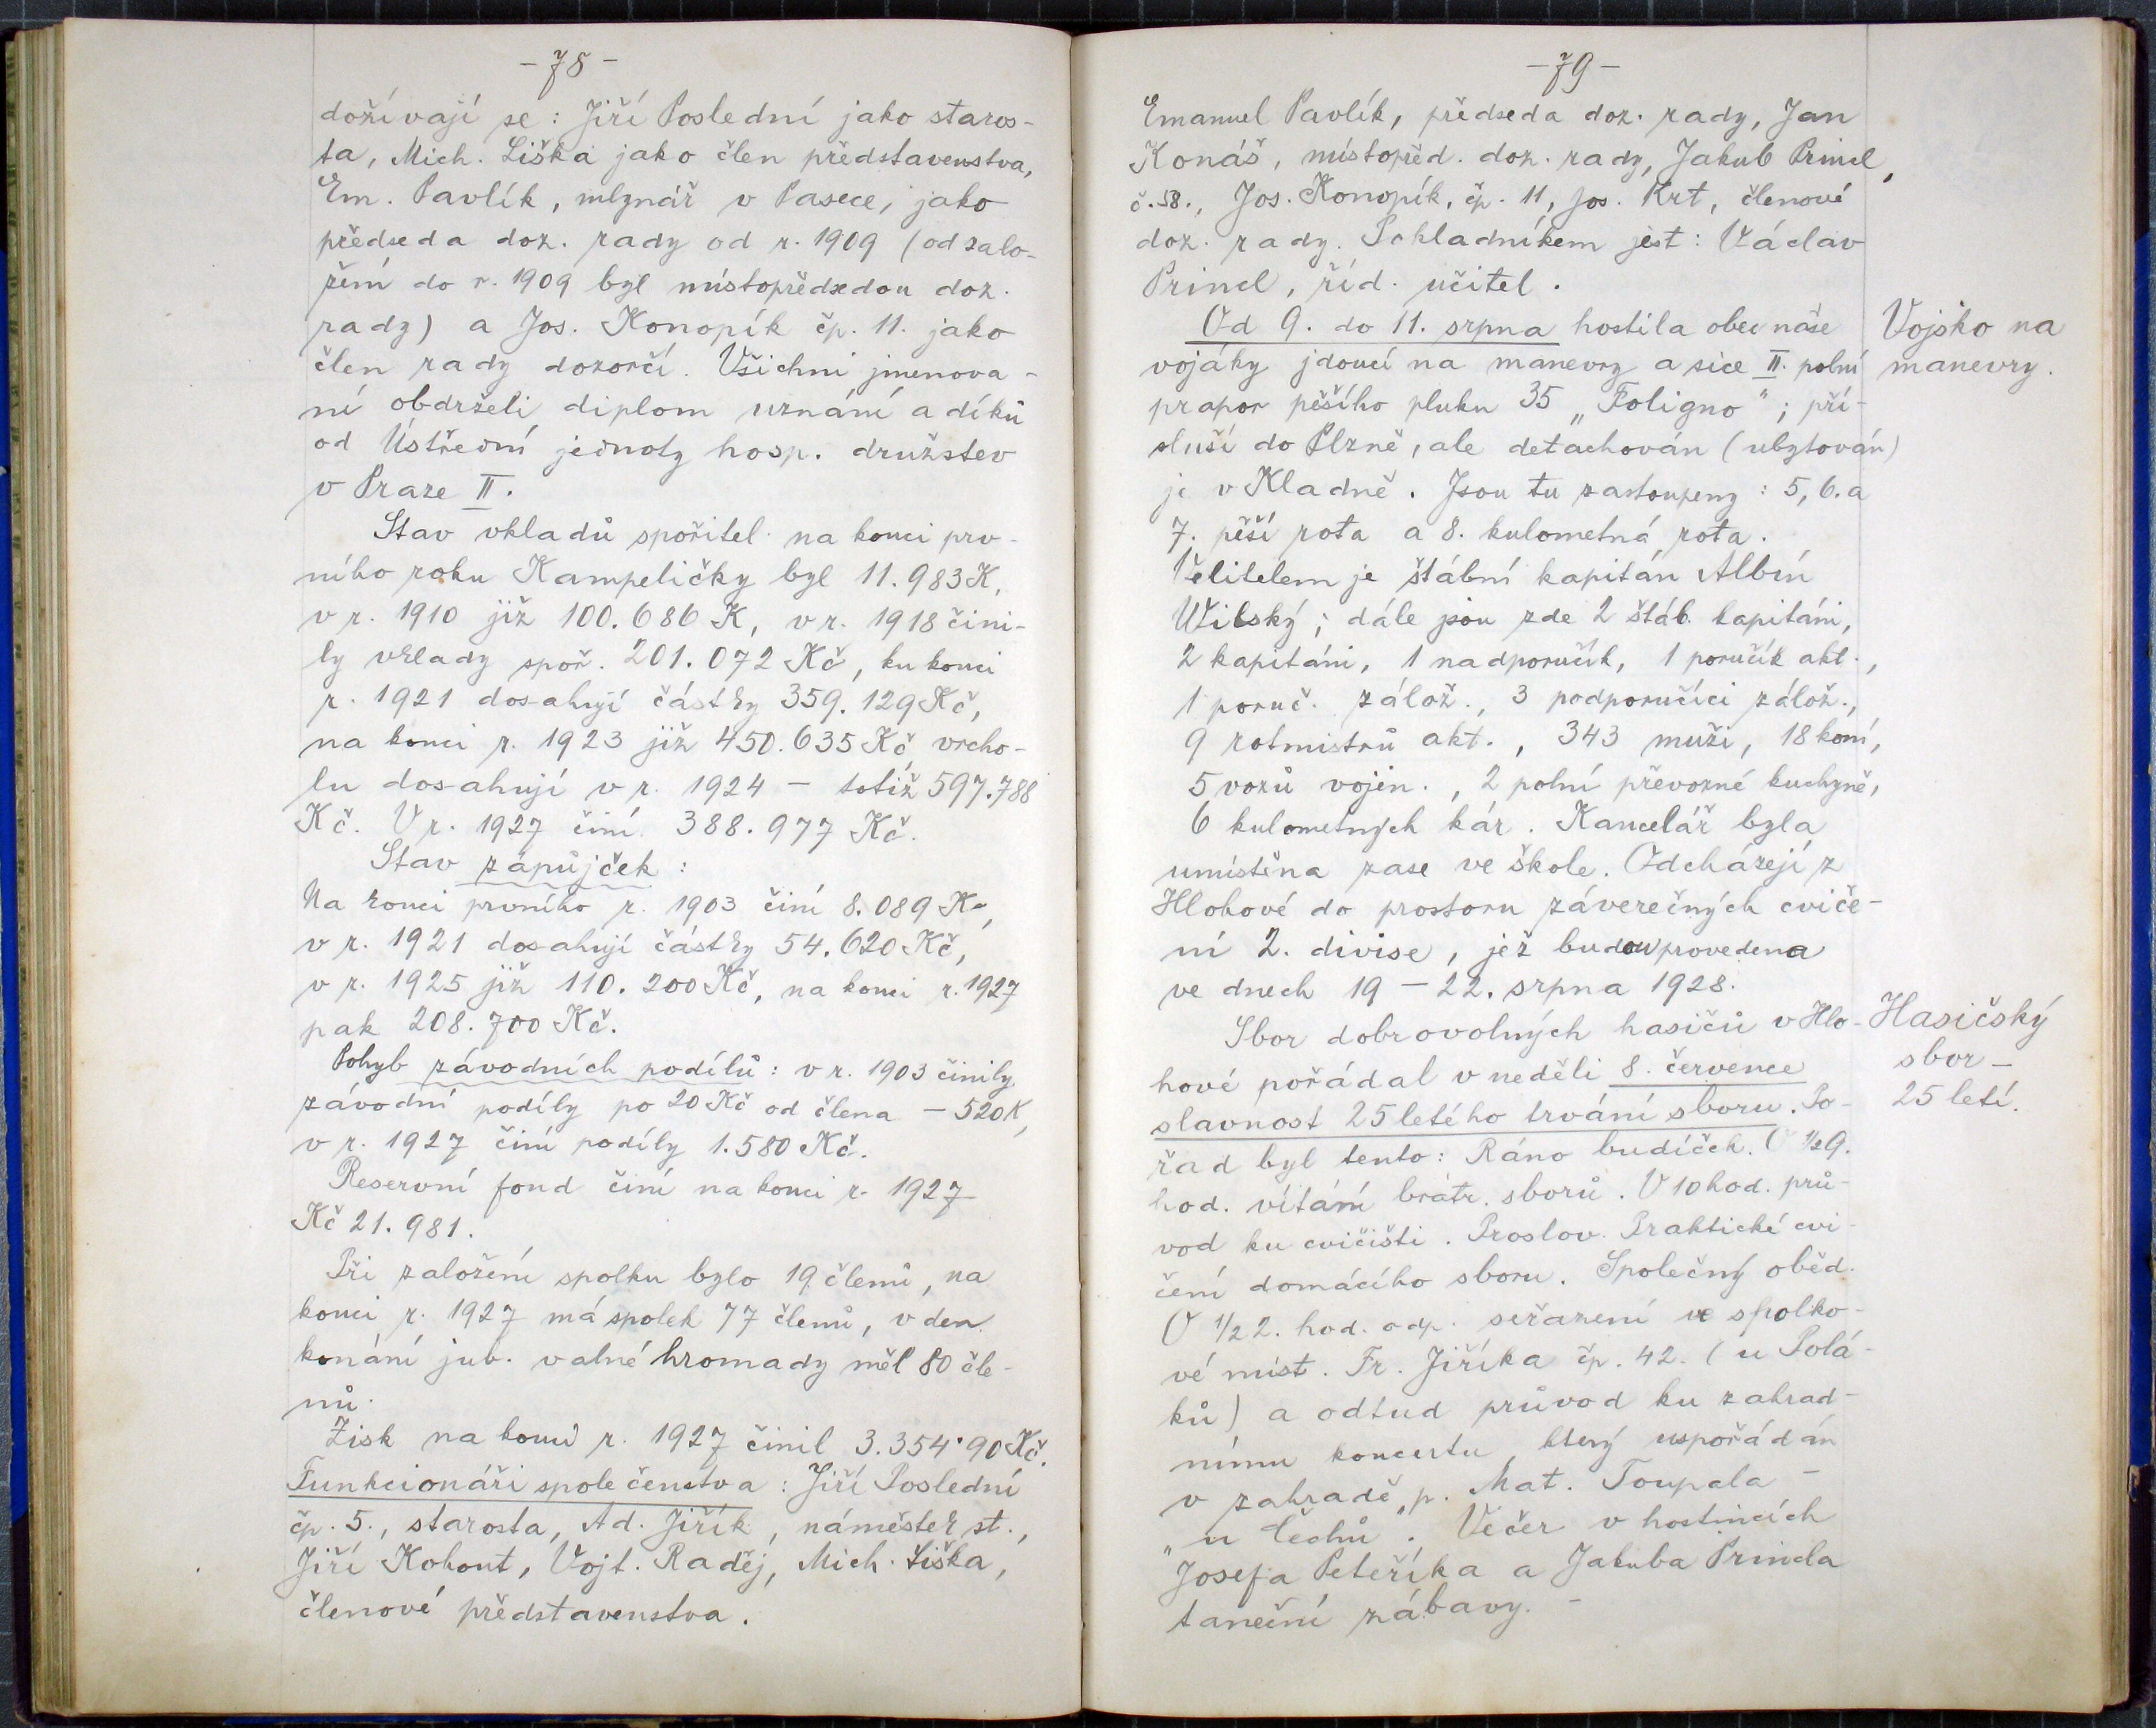 - 78 -
dožívají se: Jiří Poslední jako staros-
ta, Mich. Liška jako člen představenstva,
Em. Pavlík, mlynář v Pasece, jako
předseda doz. rady od r. 1909 (od zalo-
žení do r. 1909 byl místopředsedou doz.
rady) a Jos. Konopík čp. 11. jako
člen rady dozorčí. Všichni jmenova-
ní obdrželi diplom uznání a díků
od Ústřední jednoty hosp. družstev
v Praze II.
Stav vkladů spořitel. na konci prv-
ního roku Kampeličky byl 11.983 K,
v r. 1910 již 100.686 K, v r. 1918 čini-
ly vklady spoř. 201.072 Kč, ku konci
r. 1921 dosahují částky 359.129 Kč,
na konci r. 1923 již 450.635 Kč, vrcho-
lu dosahují v r. 1924 - totiž 597.788
Kč. V r. 1927 činí 388.977 Kč.
Stav zápůjček:
Na konci prvního r. 1903 činí 8.089 K,
v r. 1921 dosahují částky 54.620 Kč,
v r. 1925 již 110.200 Kč, na konci r. 1927
pak 208.700 Kč.
Pohyb závodních podílů: v r. 1903 činily
závodní podíly po 20 Kč od člena - 520 K,
v r. 1927 činí podíly 1.580 Kč.
Reservní fond činí na konci r. 1927
Kč 21.981.
Při založení spolku bylo 19 členů, na
konci r. 1927 má spolek 77 členů, v den
konání jub. valné hromady měl 80 čle-
nů.
Zisk na konci r. 1927 činil 3.354·90 Kč.
Funkcionáři společenstva: Jiří Poslední
čp. 5., starosta, Ad. Jiřík, náměstek st.,
Jiří Kohout, Vojt. Raděj, Mich. Liška,
členové představenstva.
- 79 -
Emanuel Pavlík, předseda doz. rady, Jan
Konáš, místopřed. doz. rady, Jakub Princl,
č. 58., Jos. Konopík, čp. 11, Jos. Krt, členové
doz. rady. Pokladníkem jest: Václav
Princl, říd. učitel.
Od 9. do 11. srpna hostila obec naše
vojáky jdoucí na manevry a sice II. polní
prapor pěšího pluku 35 „Foligno"; pří-
sluší do Plzně, ale detachován (ubytován)
je v Kladně. Jsou tu zastoupeny: 5, 6. a
7. pěší rota a 8. kulometná rota.
Velitelem je štábní kapitán Albín
Wilský; dále jsou zde 2 štáb. kapitáni,
2 kapitáni, 1 nadporučík, 1 poručík akt.,
1 poruč. zálož., 3 podporučíci zálož.,
9 rotmistrů akt., 343 muži, 18 koní,
5 vozů vojen., 2 polní převozné kuchyně,
6 kulometných kár. Kancelář byla
umístěna zase ve škole. Odcházejí z
Hlohové do prostoru záverečných cviče-
ní 2. divise, jež budou provedena
ve dnech 19 - 22. srpna 1928.
Sbor dobrovolných hasičů v Hlo-
hové pořádal v neděli 8. července
slavnost 25letého trvání sboru. Po-
řad byl tento: Ráno budíček. O ½9.
hod. vítání brátr. sborů. V 10 hod. prů-
vod ku cvičišti. Proslov. Praktické cvi-
čení domácího sboru. Společný oběd.
O ½2. hod. odp. seřazení ve spolko-
vé míst. Fr. Jiříka čp. 42. (u Polá-
ků) a odtud průvod ku zahrad-
nímu koncertu, který uspořádán
v zahradě p. Mat. Toupala -
„u Čechů". Večer v hostincích
Josefa Peteříka a Jakuba Princla
taneční zábavy. -
Vojsko na
manevry.
Hasičský
sbor -
25 letí.